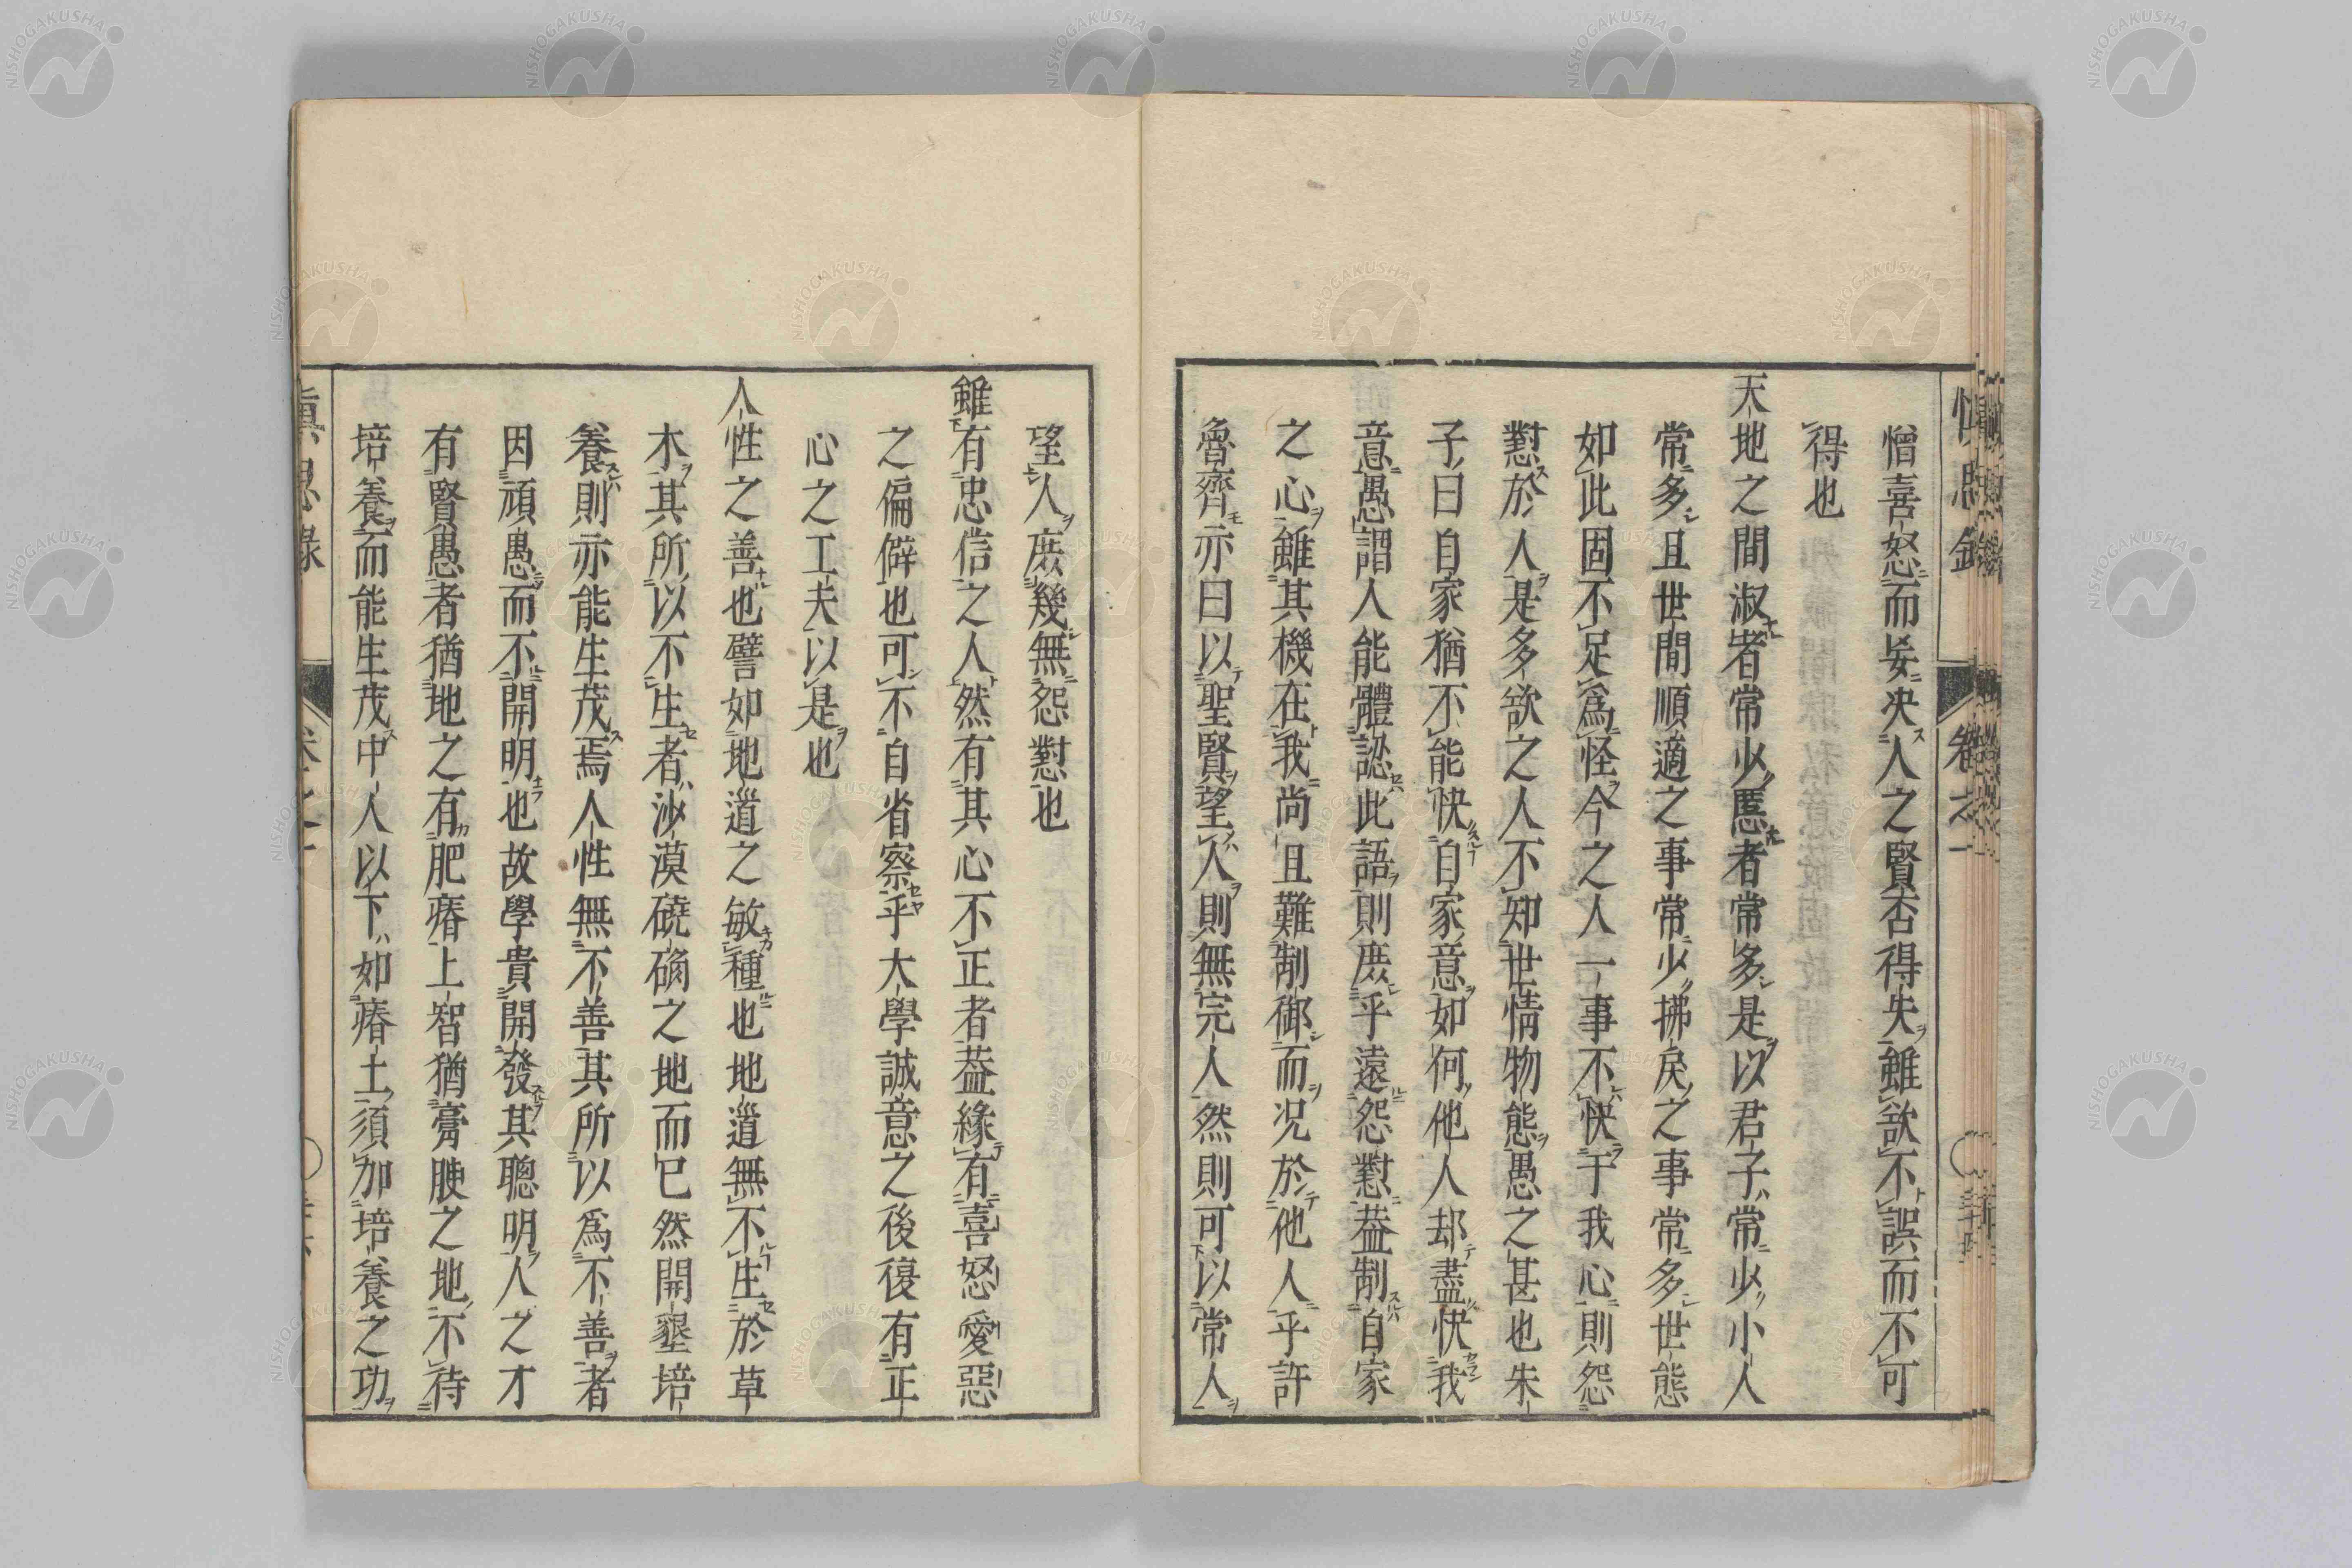 憎喜怒而妄决人之賢否得失雖欲不誤而不可
得也
天地之間淑者常少慝者常多是以君子常少小人
常多且世間順適之事常少拂戾之事常多世態
如此固不足爲怪今之人一事不快于我心則怨
懟於人是多欲之人不知世情物態愚之甚也朱
子曰自家猶不能快自家意如何他人却盡快我
意愚謂人能體認此語則庶乎遠怨懟葢制自家
之心雖其機在我尚且難制御而况於他人乎許
魯齊亦曰以聖賢望人則無完人然則可以常人
望人庶幾無怨懟也
雖有忠信之人然有其心不正者葢緣有喜怒愛惡
之偏僻也可不自省察乎大學誠意之後復有正
心之工夫以是也
人性之善也譬如地道之敏種也地道無不生於草
木其所以不生者沙漠磽确之地而已然開墾培
養則亦能生茂焉人性無不善其所以爲不善者
因頑愚而不開明也故學貴開發其聰明人之才
有賢愚者猶地之有肥瘠上智猶膏腴之地不待
培養而能生茂中人以下如瘠土須加培養之功